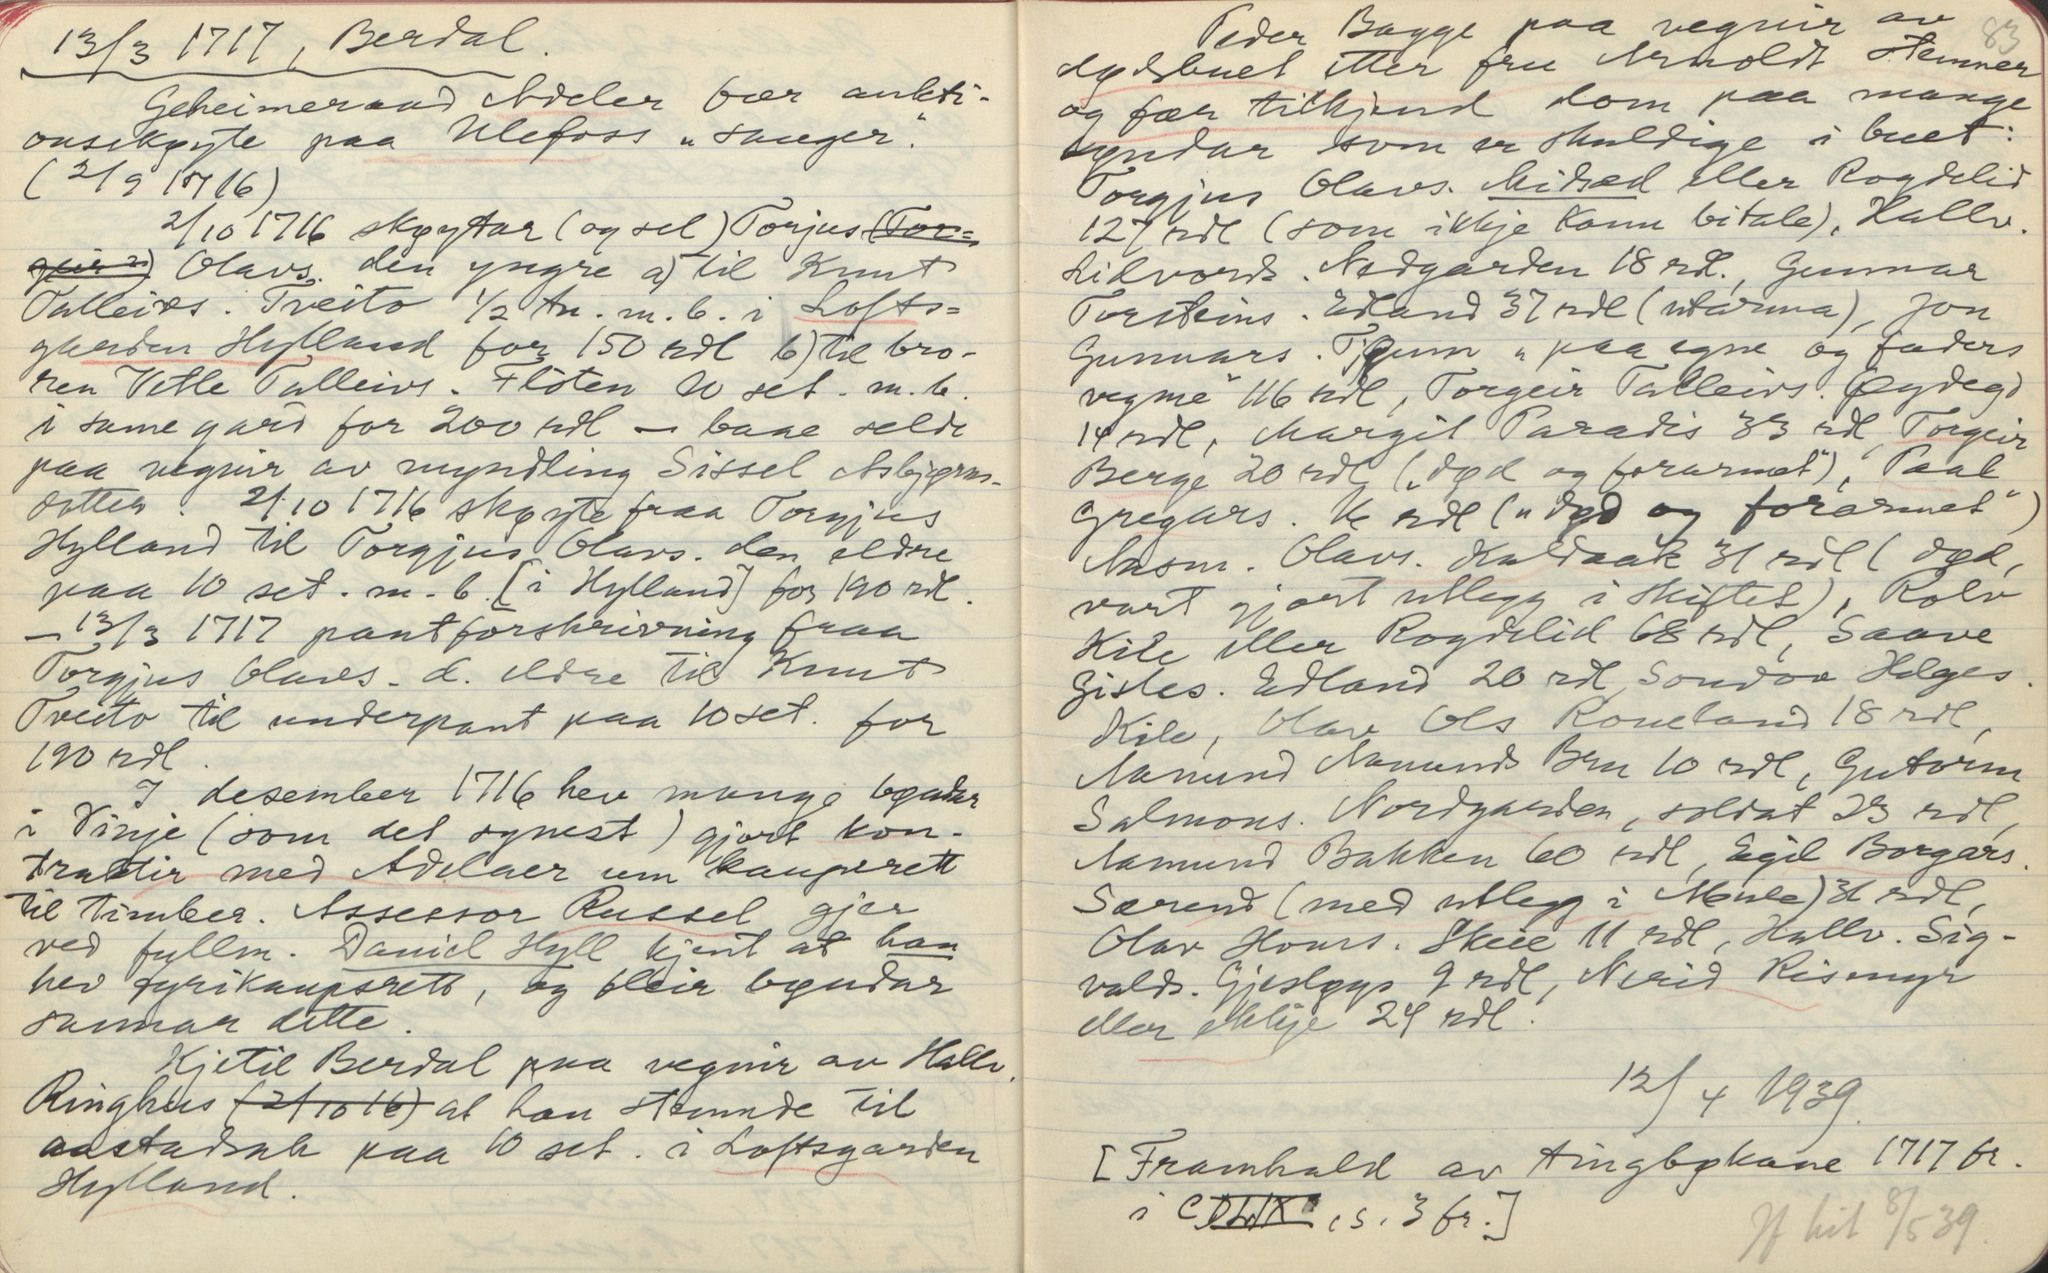 13/3 1717, Berdal.
Geheimeraad Adeler fær aukti-
onsskøyte paa Ulefoss "sauger".
(2/9 1716)
2/10 1716 skøytar (og sel) Torjus (Tor=
geir s) Olavs. den yngre a) til Knut
Talleivs. Tveito 1/2 tn. m. b. i Lofts=
garden Hylland for 150 rdl b) til bro-
ren Vetle Talleivs. Flôten 10 set. m. b.
i same gard for 200 rdl — baae selde
paa vegnir av myndling Sissel Asbjørns-
dotter. 2/10 1716 skøyte fraa Torgjus
Hylland til Torgjus Olavs. den eldre
paa 10 set. m. b. [i Hylland] for 190 rdl.
— 13/3 1717 pantforskrivning fraa
Torgjus Olavs. d. eldre til Knut
Tveito til underpant paa 10 set. for
190 rdl.
I desember 1716 hev mange bøndar
i Vinje (som det synest) gjort kon-
traktir med Adelaer um kaupsrett
til timber. Assessor Russel gjer
ved fullm. Daniel Hyll kjent at han
hev fyrikaupsrett, og fleir bøndar
sannar dette.
Kjetil Berdal paa vegnir av Hallv.
Ringhus (2/10 16) at han stemnde til
aastadsak paa 10 set. i Loftsgarden
Hylland.
83
Peder Bagge paa vegnir av
dødsbuet etter fru Arnoldt stemner
og fær tilkjend dom paa mange
bøndar som er skuldige i buet:
Torgjus Olavs. Midbød eller Rogdelid
127 rdl (som ikkje kann bitale), Hallv.
Lidvords. Nedgarden 18 rdl., Gunnar
Torsteins. Edland 37 rdl (utarma), Jon
Gunnars. Tjønn "paa egne og faders
vegne" 116 rdl, Torgeir Talleivs. Øygdegd
14 rdl, Margit Paradis 33 rdl, Torgeir
Berge 20 rdl ("død og forarmet"), Paal
Gregars. 16 rdl ("død og forarmet")
Aasm. Olavs. Kaldaak 31 rdl (død,
vart gjort utlegg i skiftet), Rolv
Kile eller Rogdelid 68 rdl, Saave
Gisles. Edland 20 rdl, Sondov Helges.
Kile, Olav Ols Roueland 18 rdl,
Aamund Aamunds Bru 10 rdl, Gutorm
Salmons. Nordgarden, soldat 23 rdl,
Aamund Bakken 60 rdl, Eigil Borgars.
Særend (med utlegg i Mule) 31 rdl,
Olav Hovs. Skeie 11 rdl, Hallv. Sig-
valds. Gjesløys 9 rdl, Nerid Rismyr
eller 24 rdl.
12/4 1939.
[Framhald av tingbøkane 1717 fr.
i , s. 3 fr.]
Jf hit 8/5 39.